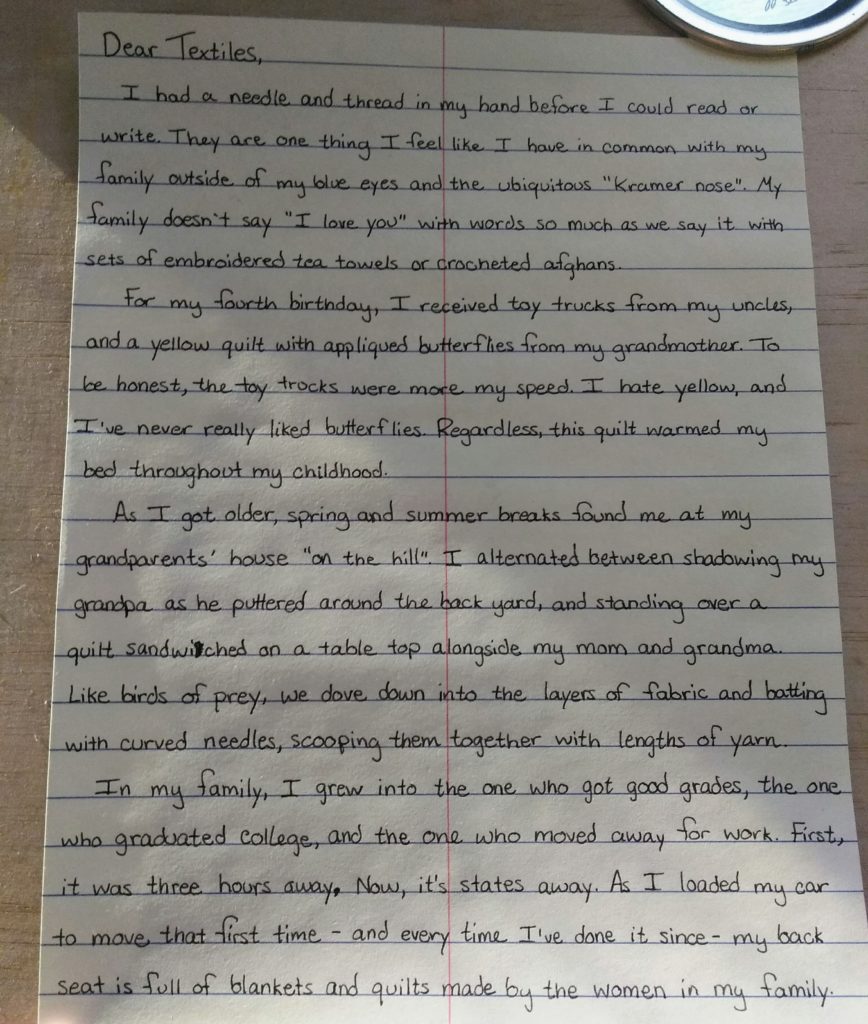 Dear Textiles,
I had a needle and thread in my hand before I could read or
write. They are one thing I feel like I have in common with my
family outside of my blue eyes and the ubiquitous "Kramer nose". My
family doesn't say "I love you" with words so much as we say it with
sets of embroidered tea towels or crocheted afghans.
For my fourth birthday, I received toy trucks from my uncles,
and a yellow quilt with appliqued butterflies from my grandmother. To
be honest, the toy trucks were more my speed. I hate yellow, and
I've never really liked butterflies. Regardless, this quilt warmed my
bed throughout my childhood.
As I got older, spring and summer breaks found me at my
grandparents' house "on the hill". I alternated between shadowing my
grandpa as he puttered around the back yard, and standing over a
quilt sandwiched on a table top alongside my mom and grandma.
Like birds of prey, we dove down into the layers of fabric and batting
with curved needles, scooping them together with lengths of yarn.
In my family, I grew into the one who got good grades, the one
who graduated college, and the one who moved away for work. First,
it was three hours away. Now, it's states away. As I loaded my car
to move that first time - and every time I've done it since - my back
seat is full of blankets and quilts made by the women in my family.